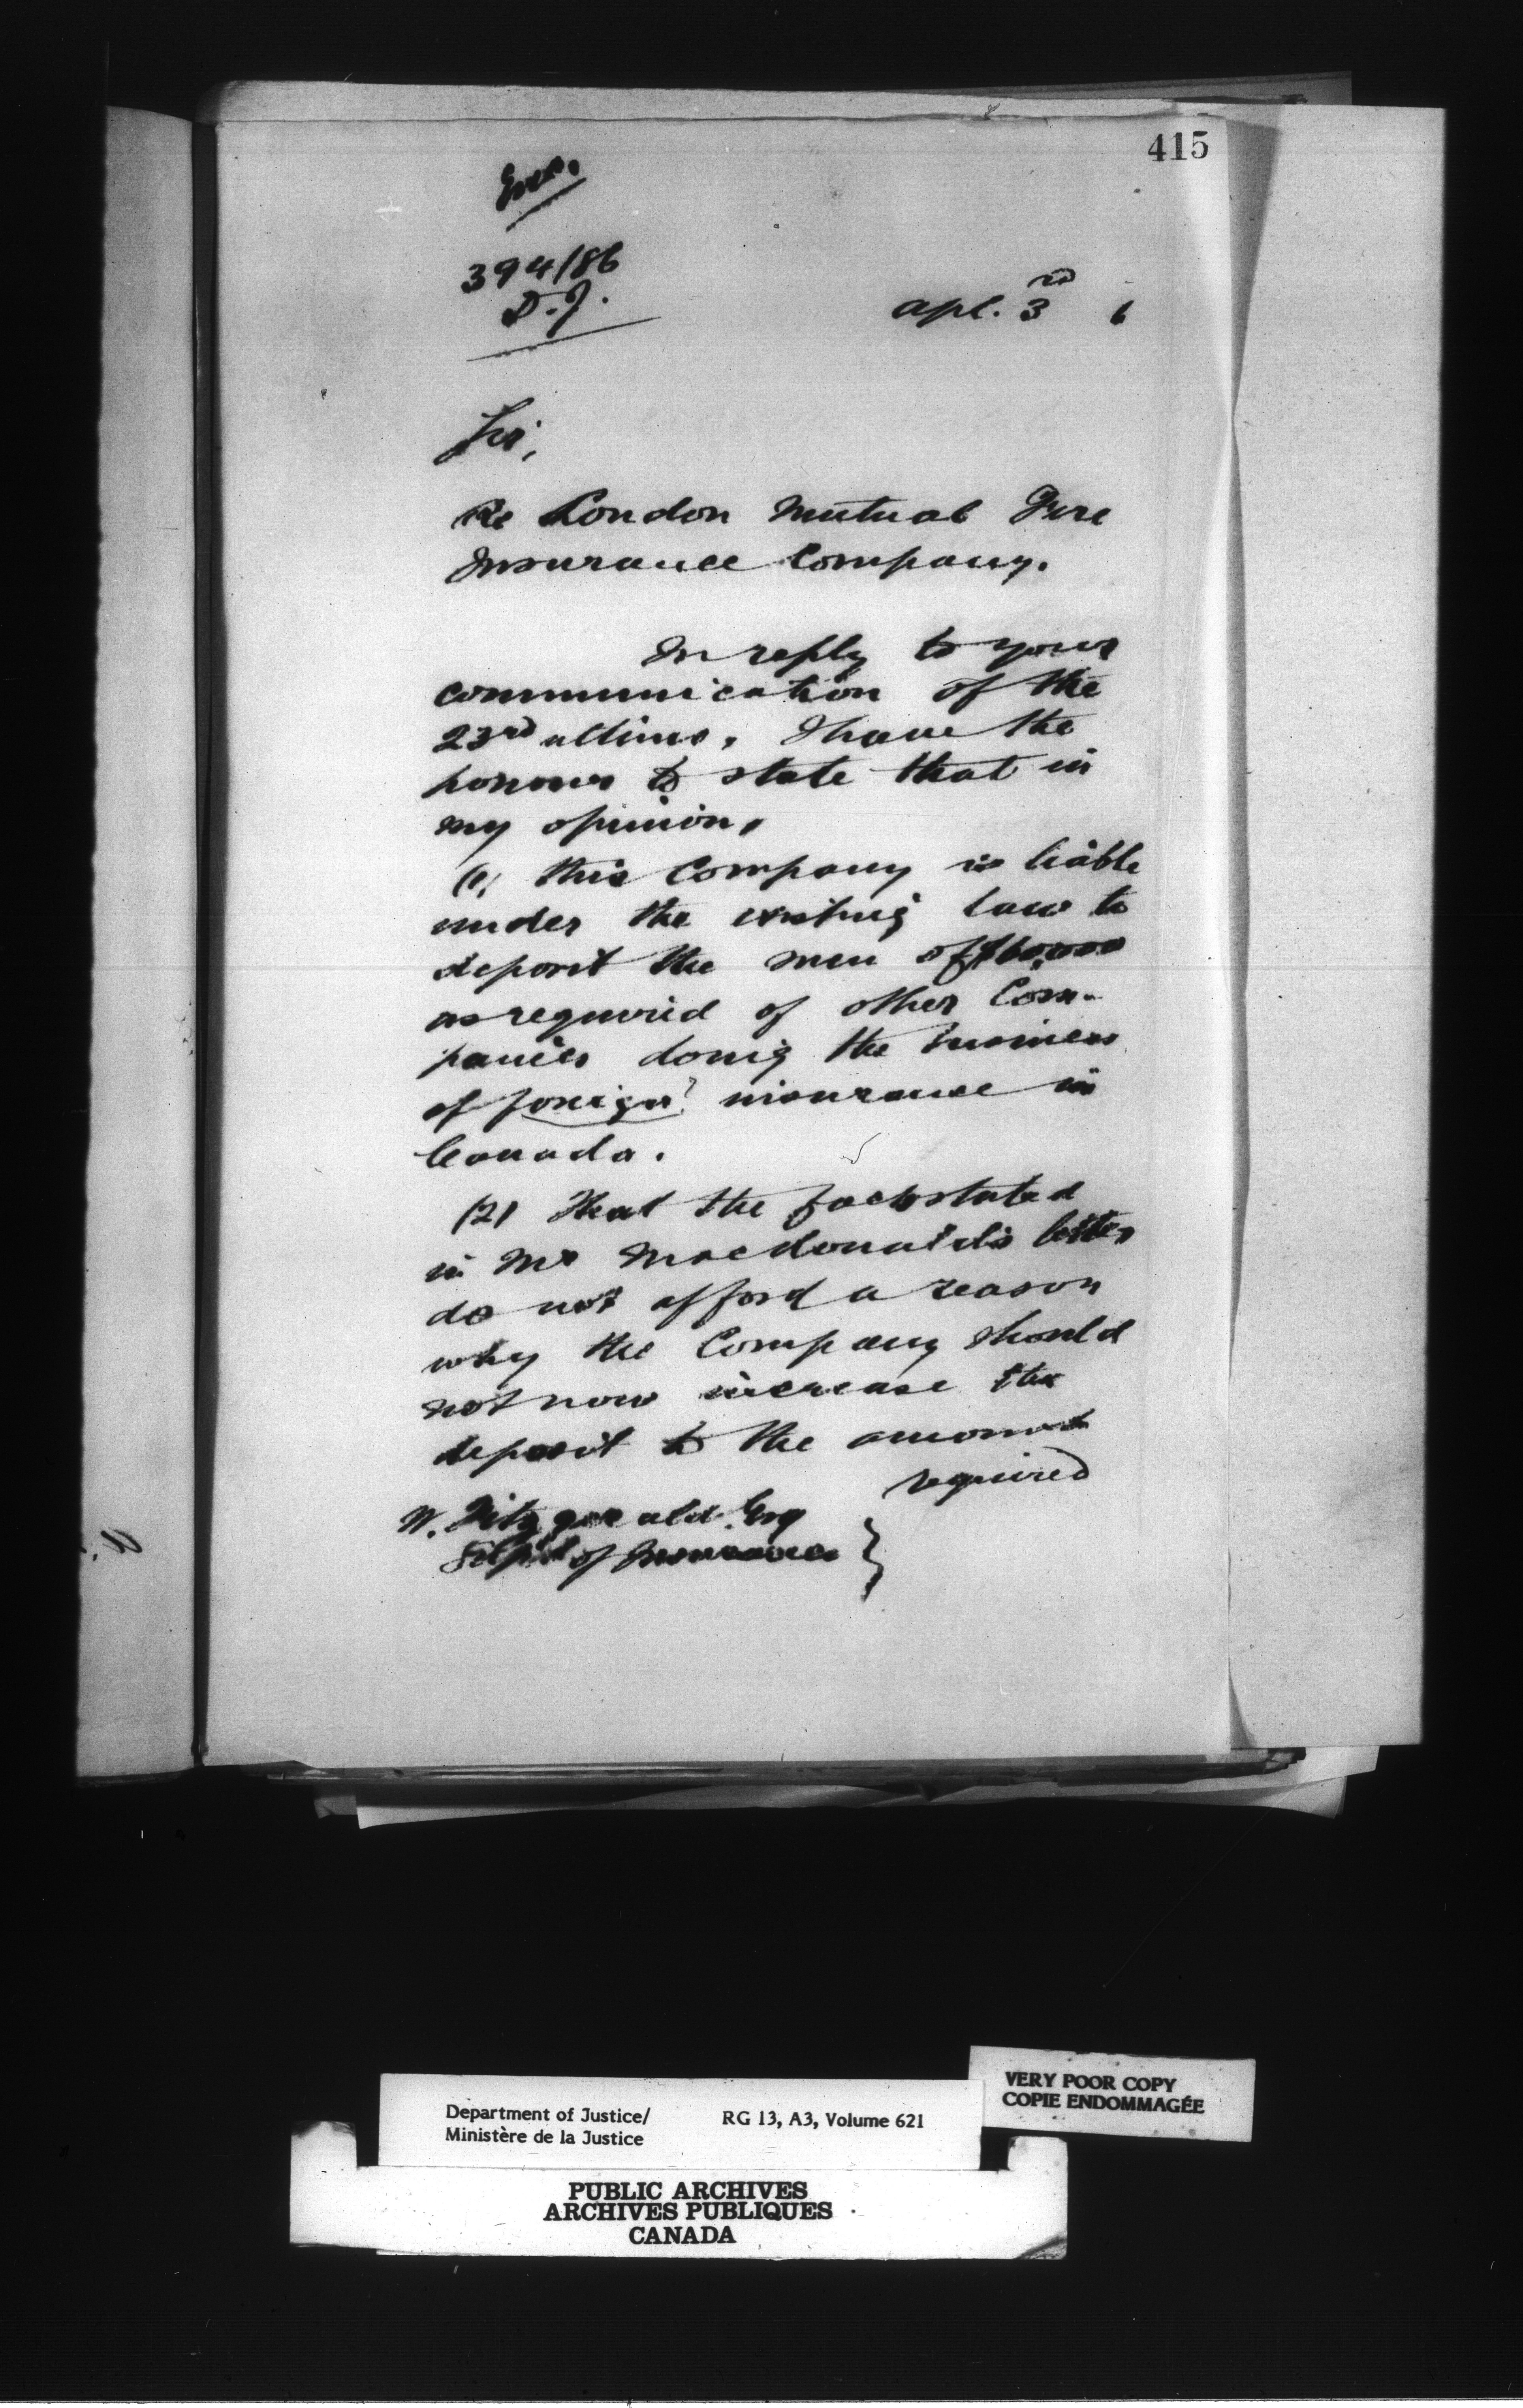 415
394/86
D.J.
Apl. 3rd 6
Sir,
Re London Mutual Fire
Insurance Company.
In reply to your
communication of the
23rd ultimo, I have the
honour to state that in
my opinion,
(1) this Company is liable
under the existing law to
deposit the sum of
as required of other Com-
panies doing the business
of foreign? insurance in
Canada.
(2) That the facts stated
in Mr Macdonald's letter
do not afford a reason
why the Company should
not now increase the
deposit to the amount
required
W. Fitzgerald Esq
Supt of Insurance
Department of Justice/ RG 13, A3, Volume 621
Ministère de la Justice
VERY POOR COPY
COPIE ENDOMMAGÉE
PUBLIC ARCHIVES
ARCHIVES PUBLIQUES
CANADA